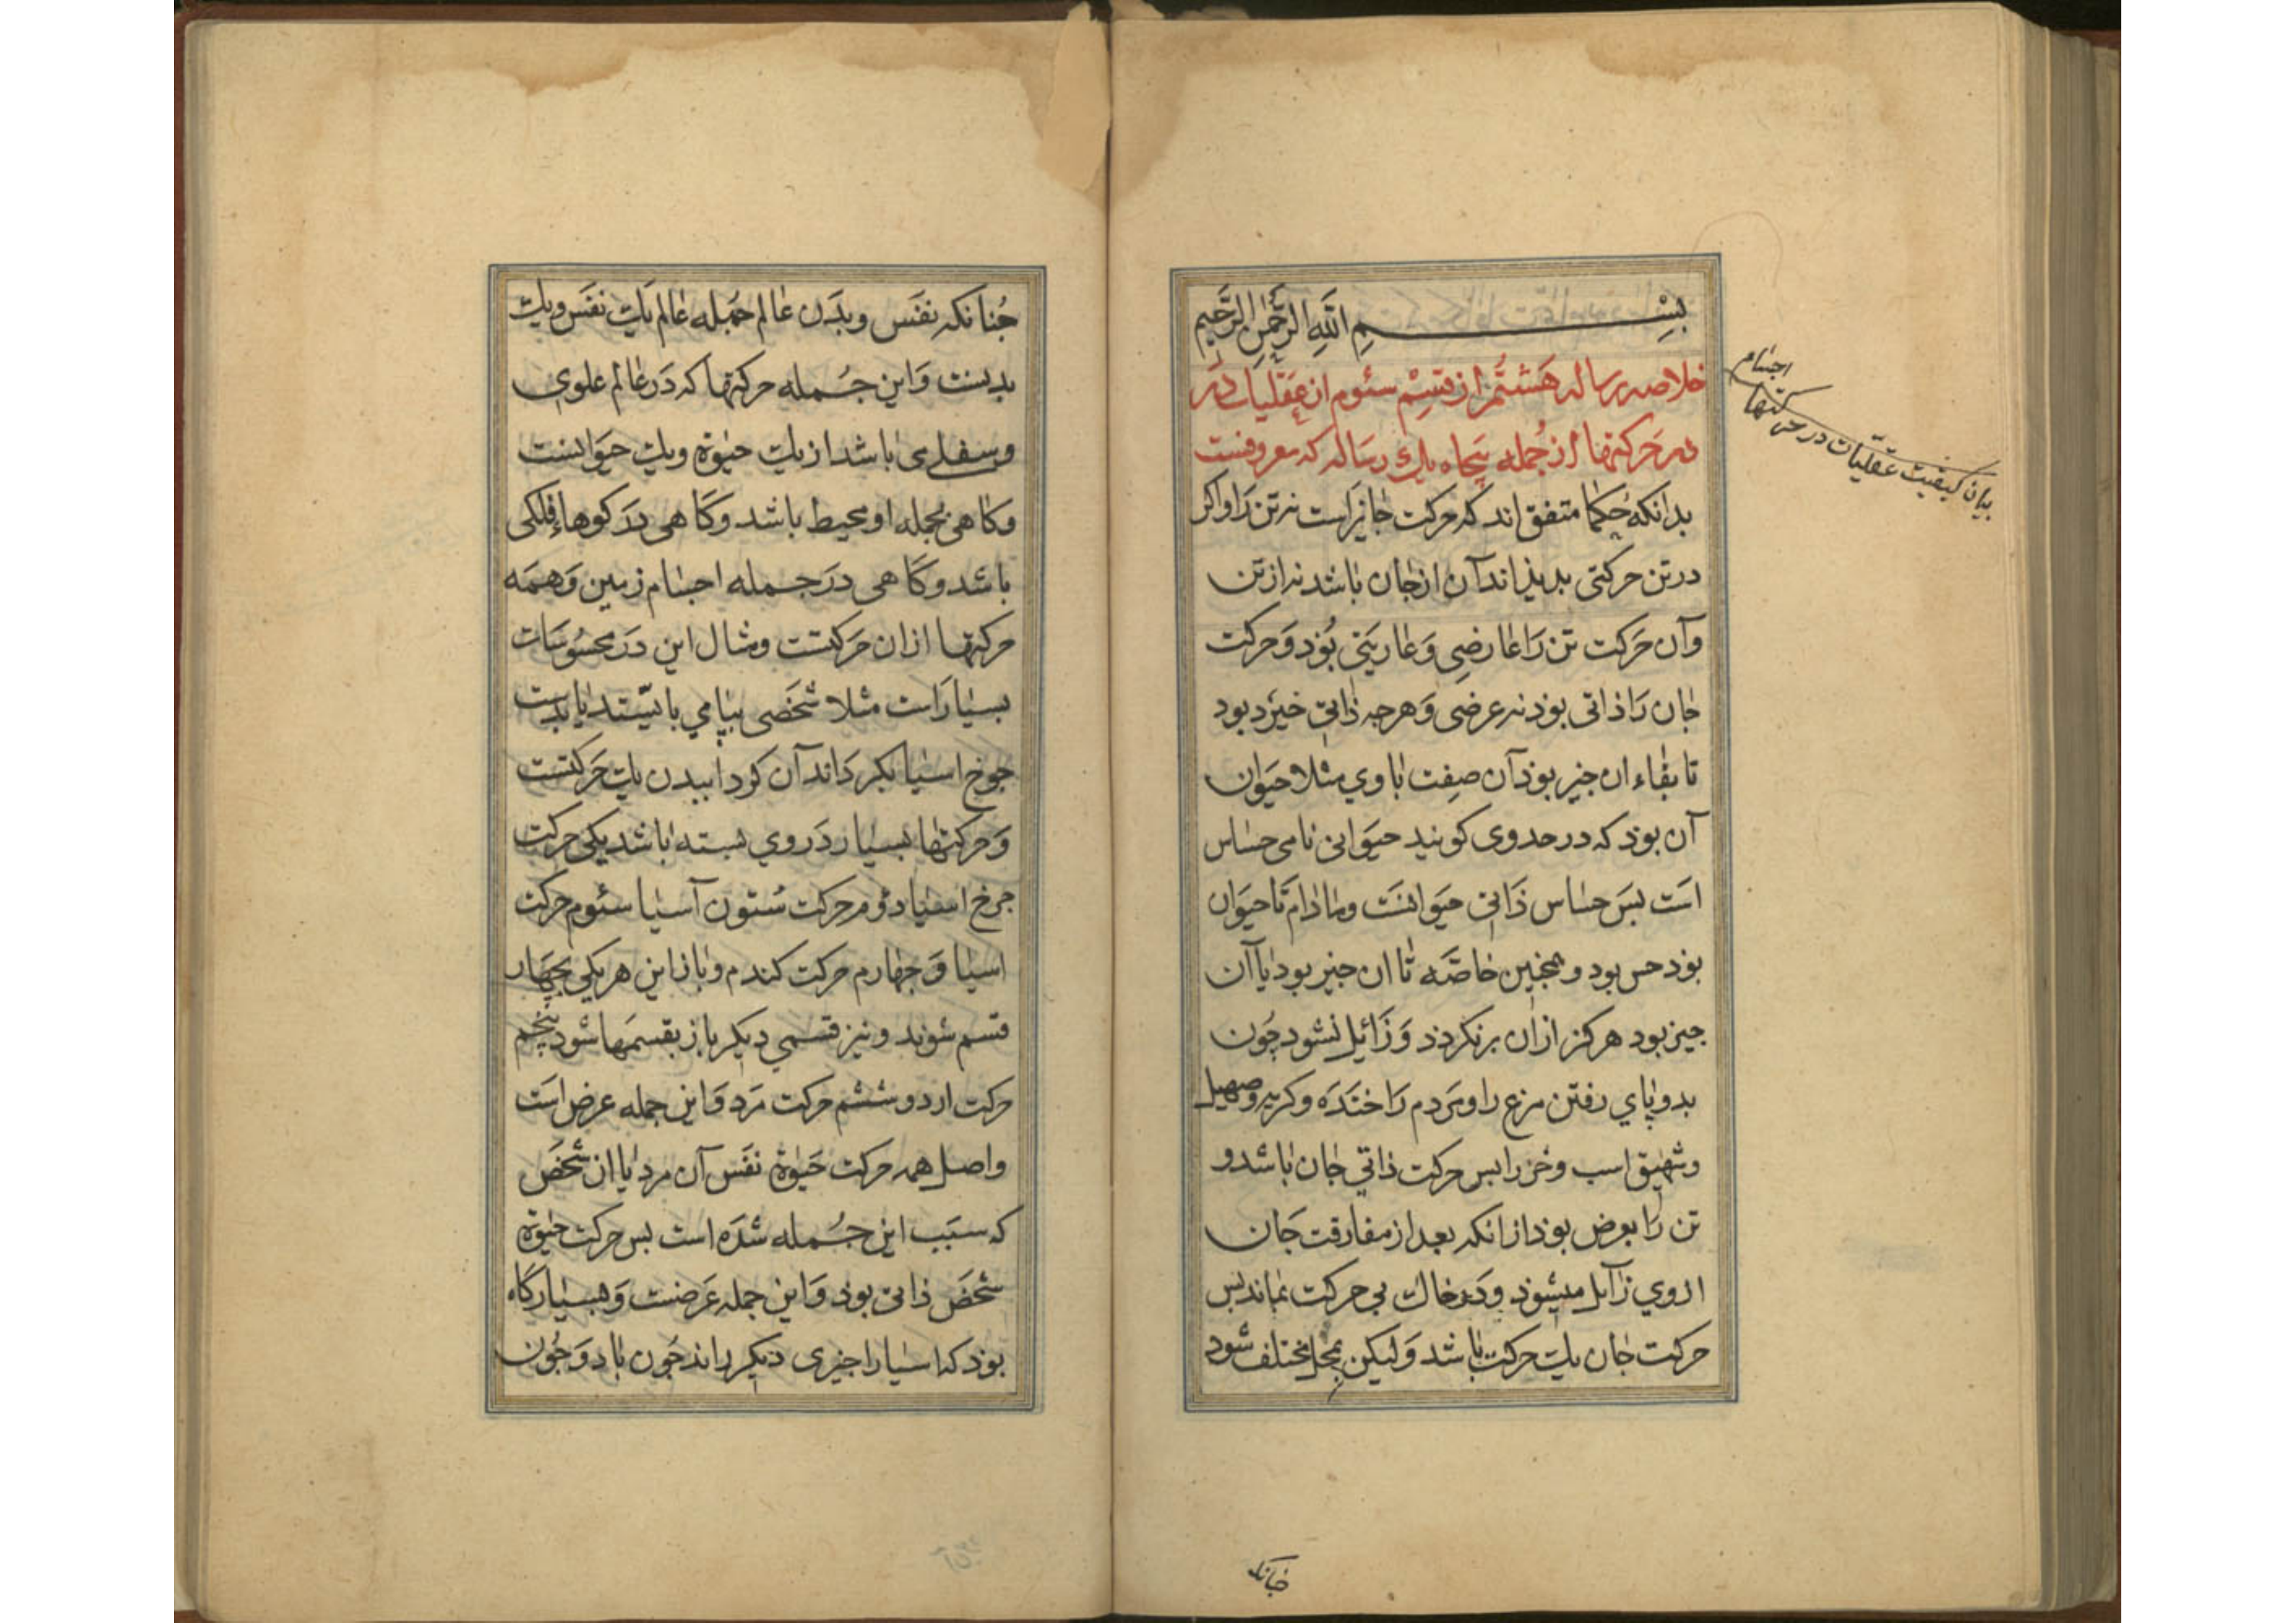 بِسْمِ اللَّهِ الرَّحْمٰنِ الرَّحِيمِ
خلاصه رساله هشتم از قسم سئوم از عقلیات در
در حرکتها از جمله پنجاه یک رساله که معروفست
بدانکه حکما متفق اند که حرکت جانراست نه تن را و اکر
در تن حرکتی پدیذ اند آن از جان باشد نه از تن
و آن حرکت تن را عارضی و عاریتی بوذ و حرکت
جان را ذاتی بوذ نه عرضی و هرجه ذاتی خیزد بود
تا بقاء ان جیز بوذ آن صفت با وی مثلا حیوان
آن بوذ که در حد وی کویند حیوانی نامی حساس
است بس حساس ذاتی حیوانست و مادام تا حیوان
بوذ حس بود و همجنین خاصه تا ان جیز بود یا آن
جیز بود هرکز از ان برنکردذ و زائل نشود جون
بدو پای رفتن مرغ را و مردم را خنده و کریه و صهیل
و شهیق اسب و خر را بس حرکت ذاتی جان باشد و
تن را بعرض بوذ از انکه بعد از مفارقت جان
از وی زآیل میشوذ و در خاك بی حرکت بماند بس
حرکت جان یك حرکت باشد و لیکن بمحل مختلف شود
اجسام
بیان کیفیت عقلیات در حرکتها
جنانکه
جنانکه نفس و بدن عالم جمله عالم یك نفس و یك
بدنست و این جمله حرکتها که در عالم علوی
و سفلی می باشد از یك حیوة و یك حیوانست
و کاهی بجمله او محیط باشد و کاهی در کوهاء فلکی
باشد و کاهی در جمله اجسام زمین و همه
حرکتها از ان حرکتست و مثال این در محسوسات
بسیار است مثلا شخصی بپامی بایستد یا بدست
جرخ اسیا بکرداند آن کردانیدن یك حرکتست
و حرکتها بسیار در وی بسته باشد یکی حرکت
جرخ اسیا دوم حرکت ستون آسیا سئوم حرکت
اسیا و جهارم حرکت کندم و باز این هر یکی بجهار
قسم شوند و نیز قسمی دیکر باز بقسمها شود پنجم
حرکت ارد و ششم حرکت مرد و این جمله عرض است
و اصل همه حرکت حیوة نفس آن مرد یا ان شخص
که سبب این جمله شده است بس حرکت حیوة
شخص ذاتی بوذ و این جمله عرضست و بسیار کاه
بوذ که اسیا را جیزی دیکر راند جون باد و جون